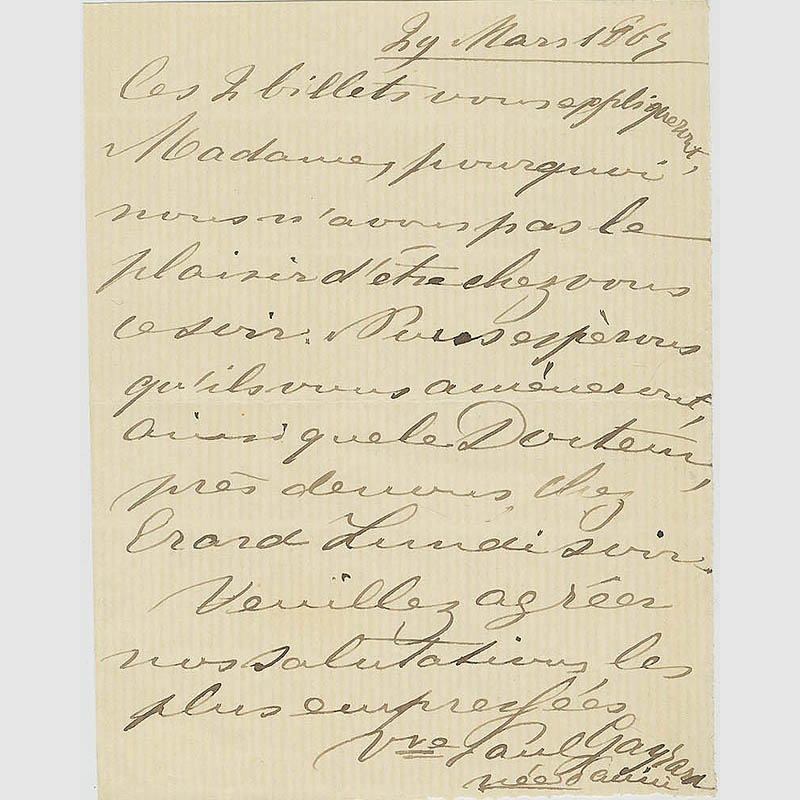 29 Mars 1865
Ces 2 billets vous appliqueront,
Madame, pourquoi
nous n'avons pas le
plaisir d'être chez vous
ce soir. Nous espèrons
qu'ils vous amèneront,
ainsi que le Docteur,
près de nous, chez
Erard Lundi soir.
Veuillez agréer
nos salutations les
plus empressées
Vve Paul Gayrard
née